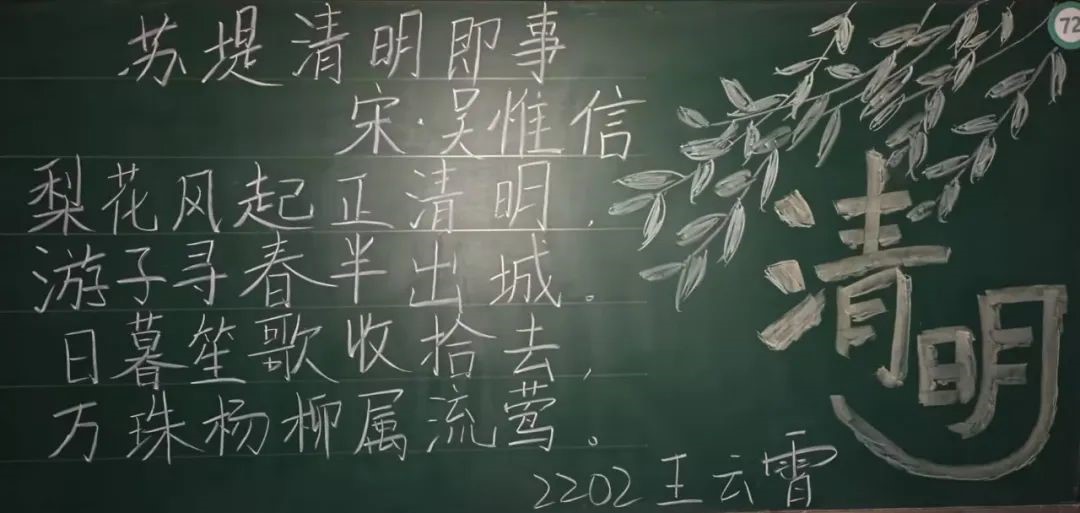 苏堤清明即事
宋·吴惟信
梨花风起正清明,
游子寻春半出城。
日暮笙歌收拾去,
万珠杨柳属流莺。
2202王云霄
清明
72